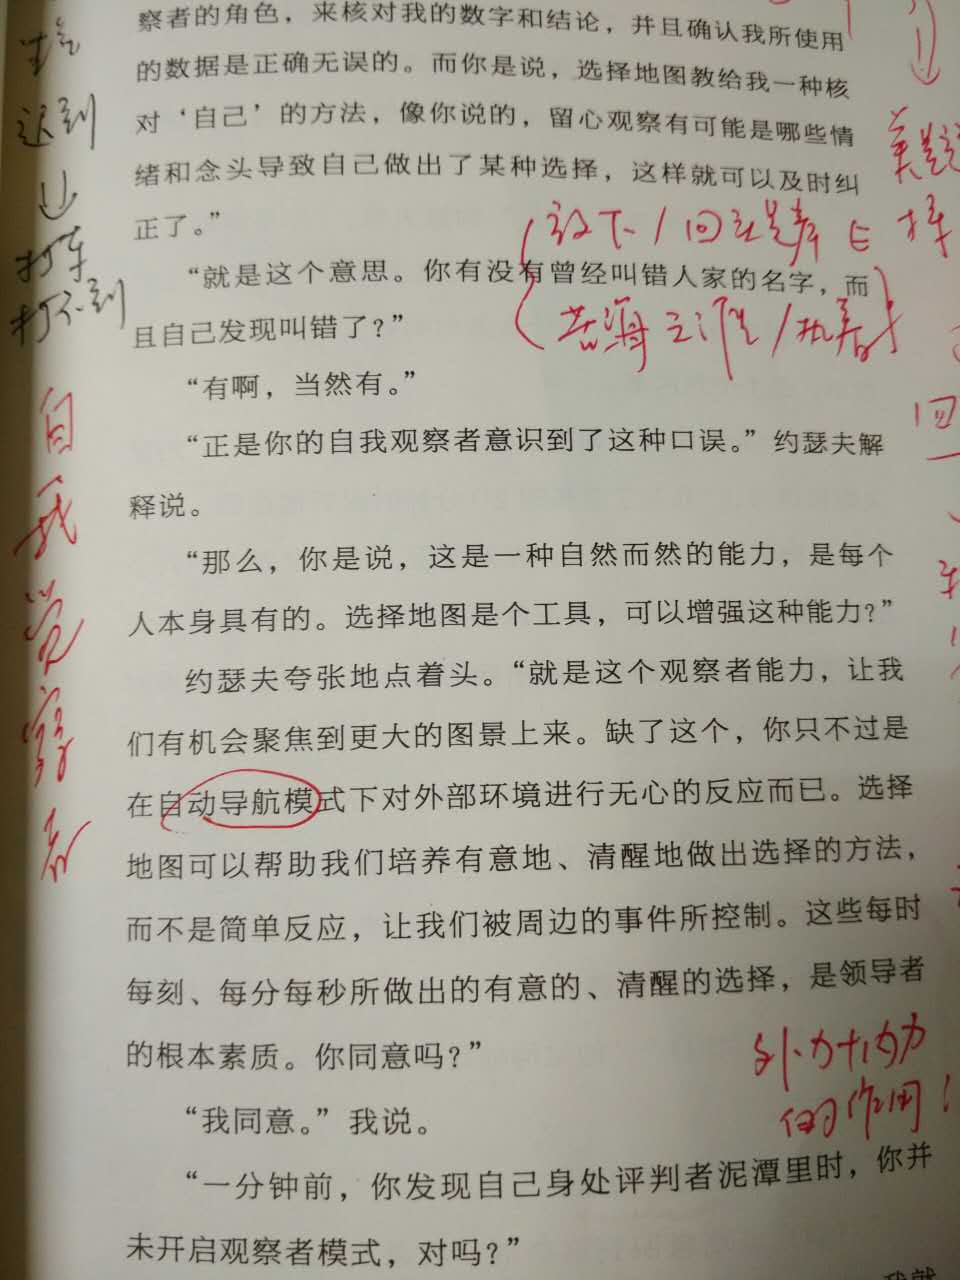 察者的角色，来核对我的数字和结论，并且确认我所使用
的数据是正确无误的。而你是说，选择地图教给我一种核
对‘自己’的方法，像你说的，留心观察有可能是哪些情
绪和念头导致自己做出了某种选择，这样就可以及时纠
正了。”
“就是这个意思。你有没有曾经叫错人家的名字，而
且自己发现叫错了？”
“有啊，当然有。”
“正是你的自我观察者意识到了这种口误。”约瑟夫解
释说。
“那么，你是说，这是一种自然而然的能力，是每个
人本身具有的。选择地图是个工具，可以增强这种能力？”
约瑟夫夸张地点着头。“就是这个观察者能力，让我
们有机会聚焦到更大的图景上来。缺了这个，你只不过是
在自动导航模式下对外部环境进行无心的反应而已。选择
地图可以帮助我们培养有意地、清醒地做出选择的方法，
而不是简单反应，让我们被周边的事件所控制。这些每时
每刻、每分每秒所做出的有意的、清醒的选择，是领导者
的根本素质。你同意吗？”
“我同意。”我说。
“一分钟前，你发现自己身处评判者泥潭里时，你并
未开启观察者模式，对吗？”
迟到
打车
打不到
自我觉察
放下/回头是岸
苦海无涯/执着
外力+内力
的作用！